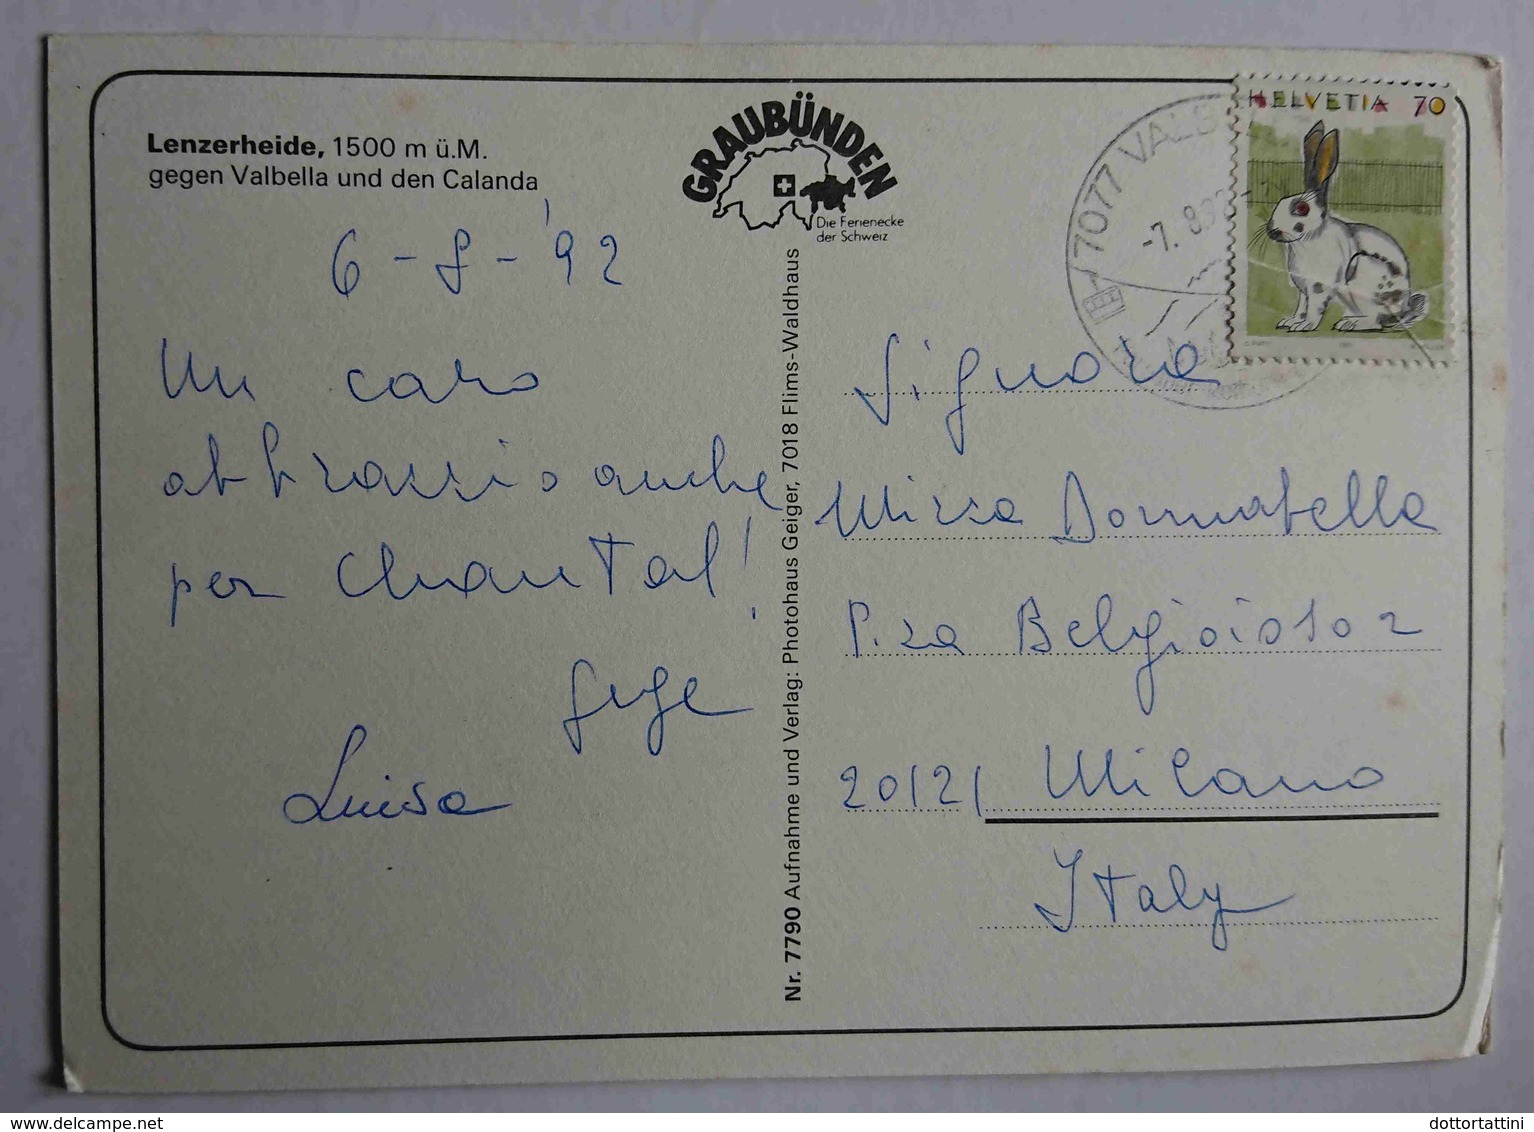 Lenzerheide, 1500 m ü.M.
gegen Valbella und den Calanda
GRAUBÜNDEN
Die Ferienecke
der Schweiz
HELVETIA 70
7077 VALB
-7. 8.92
6-8-'92
Un caro
abbraccio anche
per Chantal!
Luisa
Nr. 7790 Aufnahme und Verlag: Photohaus Geiger, 7018 Flims-Waldhaus
Signora
Mirsa Donnabella
P.za Belgioioso 2
20121 Milano
Italy
www.delcampe.net
dottortattini